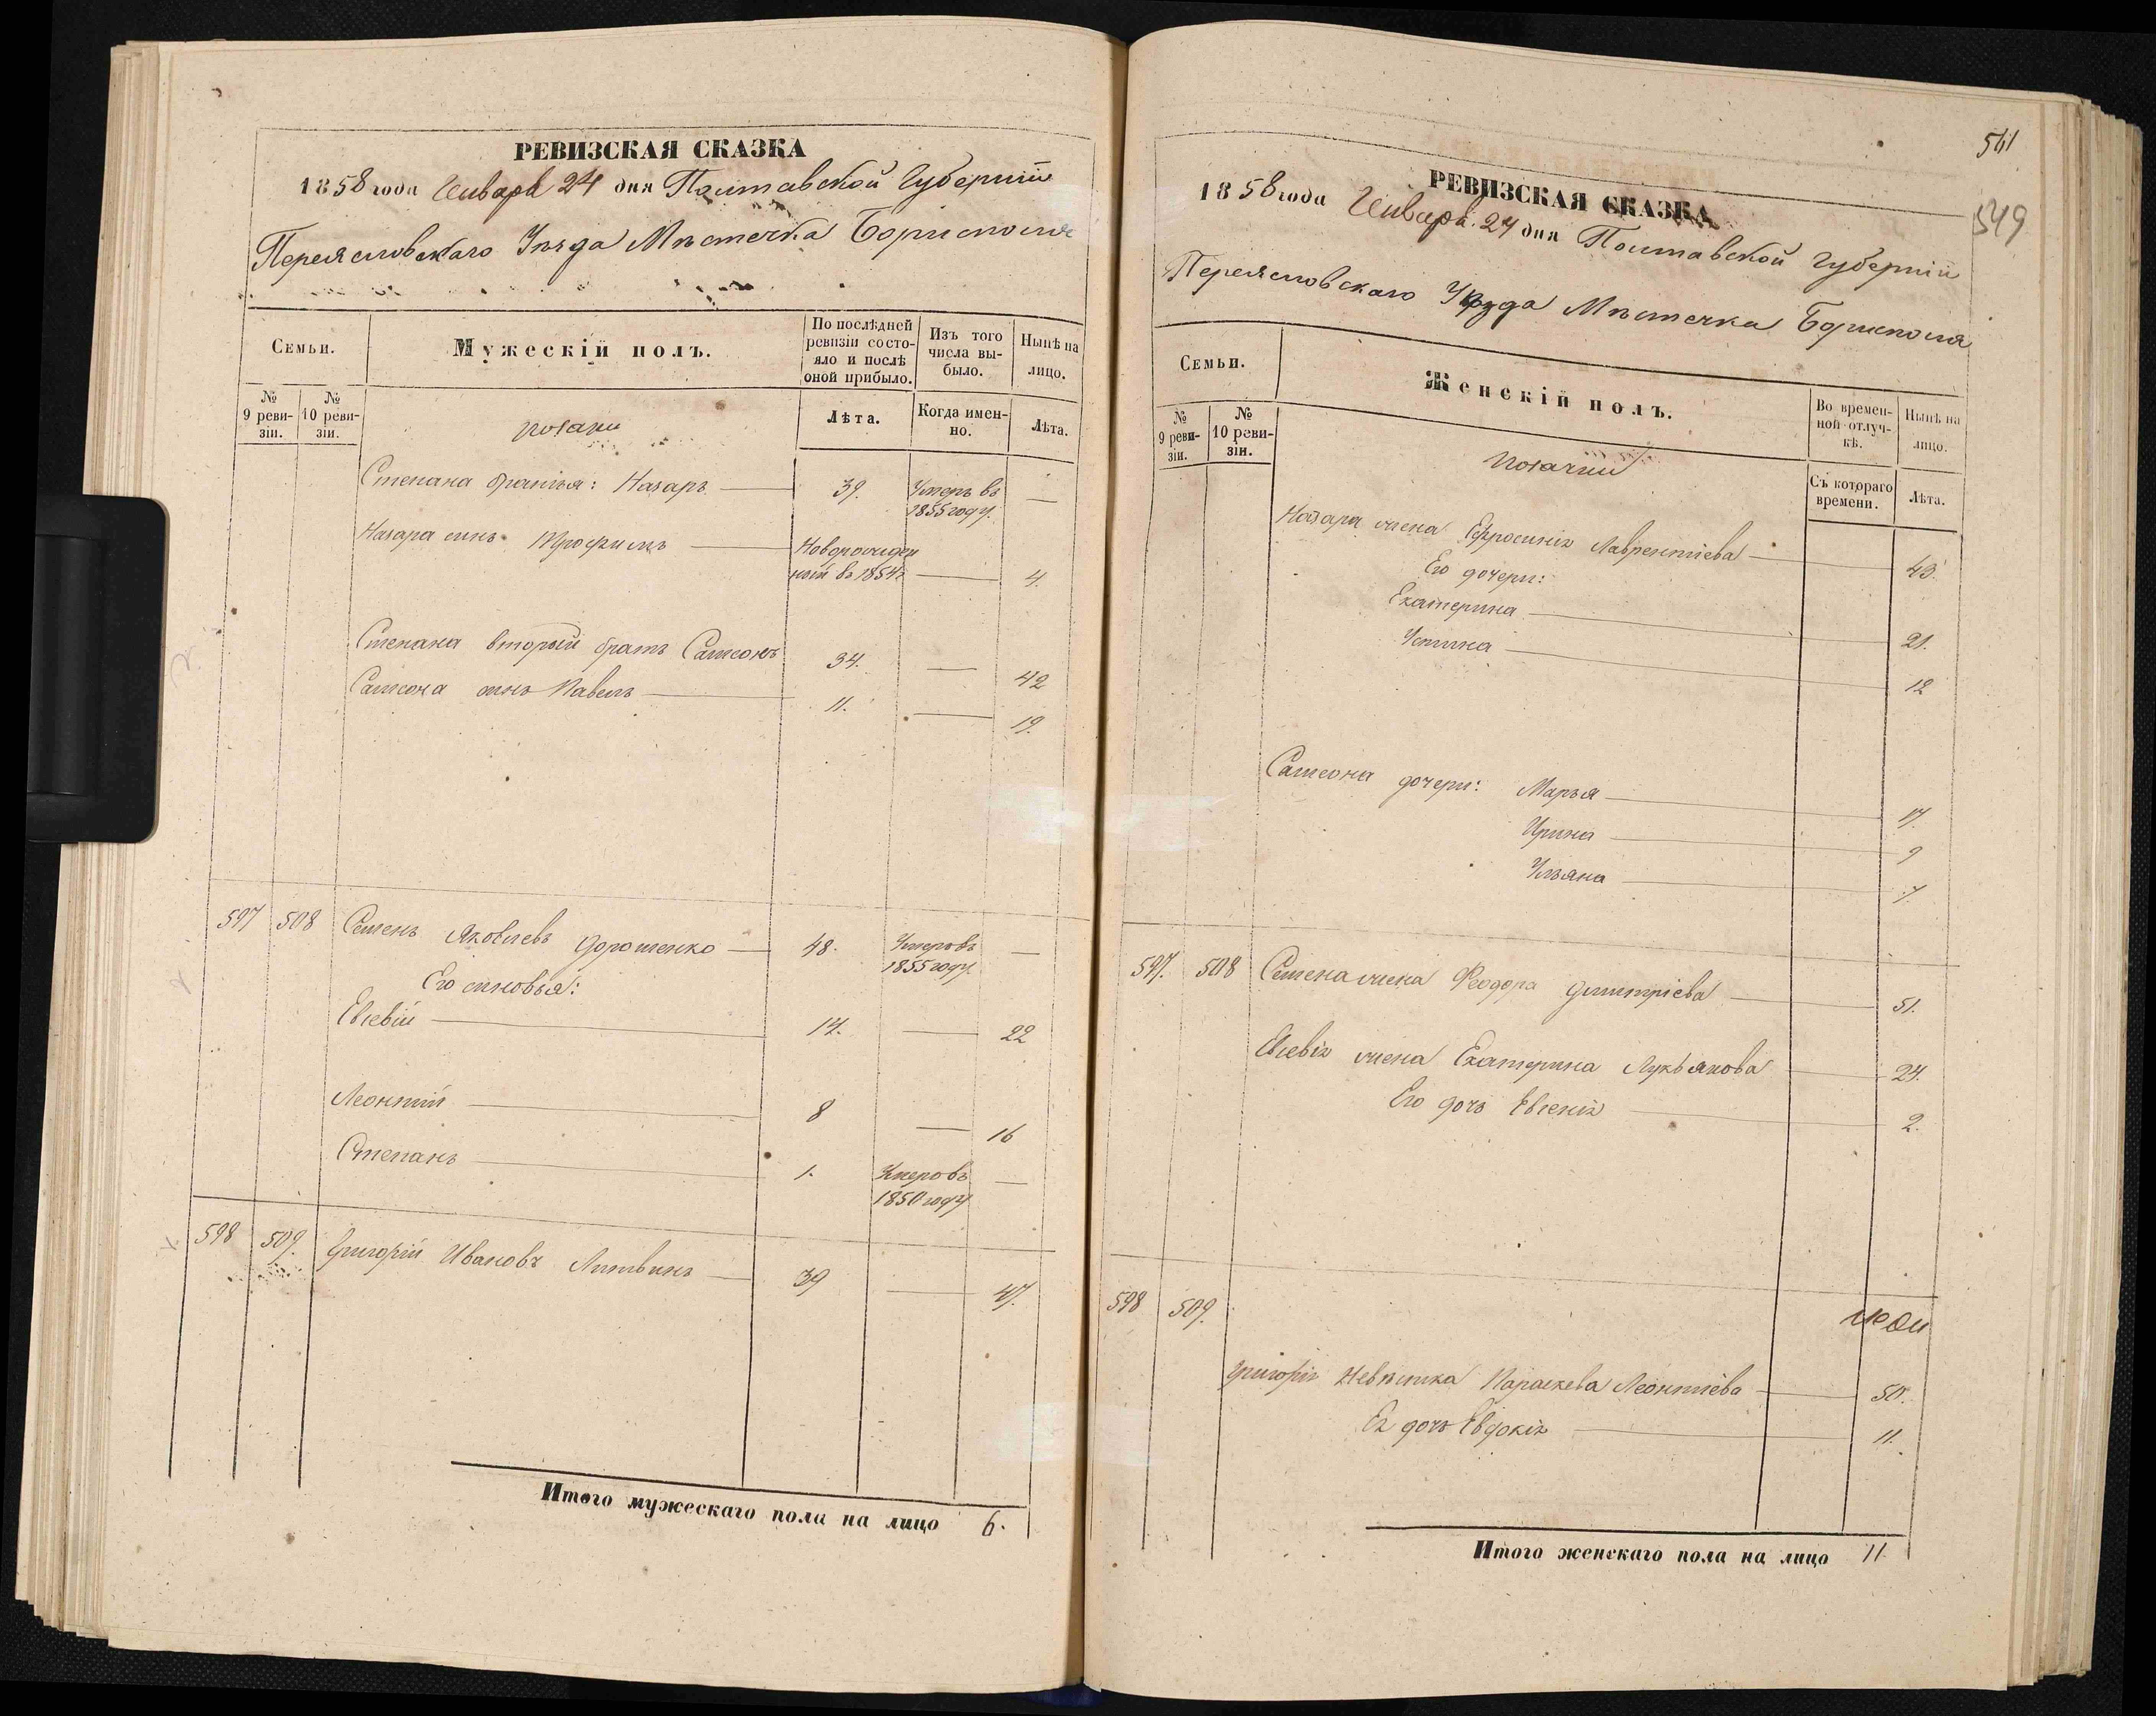 РЕВИЗСКАЯ СКАЗКА
1858 года Генваря 24 дня Полтавской Губерніи
Переясловскаго Уѣзда Мѣстечка Борисполя
Семьи.
Мужескій полъ.
По послѣдней ревизіи состояло и послѣ оной прибыло.
Изъ того числа выбыло.
Нынѣ на лицо.
№ 9 ревизіи.
№ 10 ревизіи.
козаки
Лѣта.
Когда именно.
Лѣта.
Степана братья: Назаръ 39. Умеръ въ 1855 году. —
Назара сынъ Трофимъ Новорожденный въ 1854 г. — 4.
Степана вторый братъ Самсонъ 34. — 42
Самсона сынъ Павелъ 11. — 19.
597 508 Семенъ Яковлевъ Дорошенко 48. Умеръ въ 1855 году. —
Его сыновья:
Евсевій 14. — 22
Леонтий 8 — 16
Степанъ 1. Умеръ въ 1850 году —
598 509. Григорій Ивановъ Литвинъ 39 — 47.
Итого мужескаго пола на лицо 6.
561
549
РЕВИЗСКАЯ СКАЗКА
1858 года Генваря 24 дня Полтавской Губерніи
Переясловскаго Уѣзда Мѣстечка Борисполя
Семьи.
Женскій полъ.
Во временной отлучкѣ.
Нынѣ на лицо.
№ 9 ревизіи.
№ 10 ревизіи.
козачки
Съ котораго времени.
Лѣта.
Назара жена Ефросинія Лаврентіева 43.
Его дочери:
Екатерина 21.
Устина 12
Самсона дочери: Марья 17.
Ирина 9
Ульяна 7
597. 508 Семена жена Феодора Димитріева 51.
Евсевія жена Екатерина Лукьянова 24.
Его дочь Евгенія 2.
598 509.
Григорія невѣстка Параскева Леонтіева 50.
Ея дочь Евдокія 11.
Итого женскаго пола на лицо 11